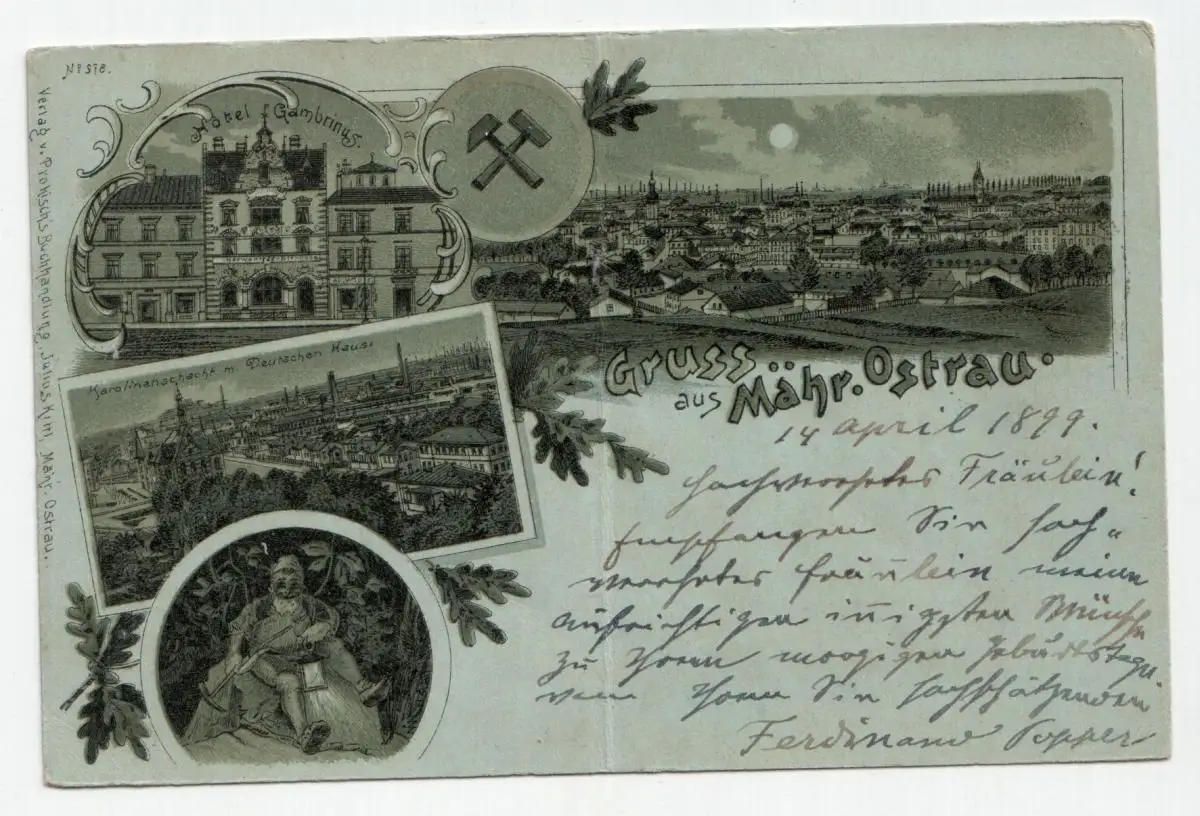 No 578.
Verlag v. Prokisch's Buchhandlung, Julius Kittl, Mähr. Ostrau.
Hôtel Gambrinus.
Karolinenschacht m. Deutschen Haus.
Gruss
aus Mähr. Ostrau.
14 April 1899.
Hochverehrtes Fräulein!
Empfangen Sie hoch-
verehrtes Fräulein meine
aufrichtigen innigsten Wünsche
zu Ihrem morgigen Geburtstage
von Ihren Sie hochschätzenden
Ferdinand Popper